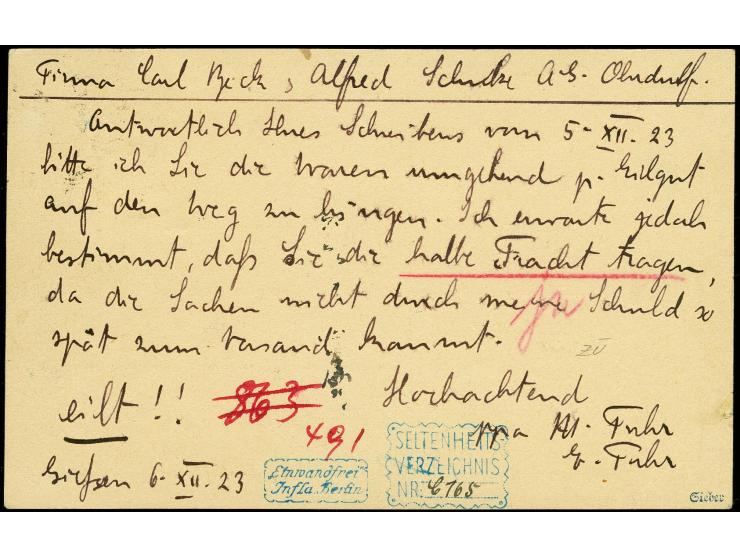 Firma Carl Beck, Alfred Schulze A.G. Ohrdruf.
Antwortlich Ihres Schreibens vom 5. XII. 23
bitte ich Sie die Waren umgehend p. Eilgut
auf den Weg zu bringen. Ich erwarte jedoch
bestimmt, daß Sie die halbe Fracht tragen,
da die Sachen nicht durch meine Schuld so
spät zum Versand kommt.
ja
zü
eilt!! 863 Hochachtend
491
ppa M. Fuhr
E. Fuhr
Gießen 6. XII. 23
Einwandfrei
Infla Berlin
SELTENHEITS
VERZEICHNIS
NR. C 165
Sieber